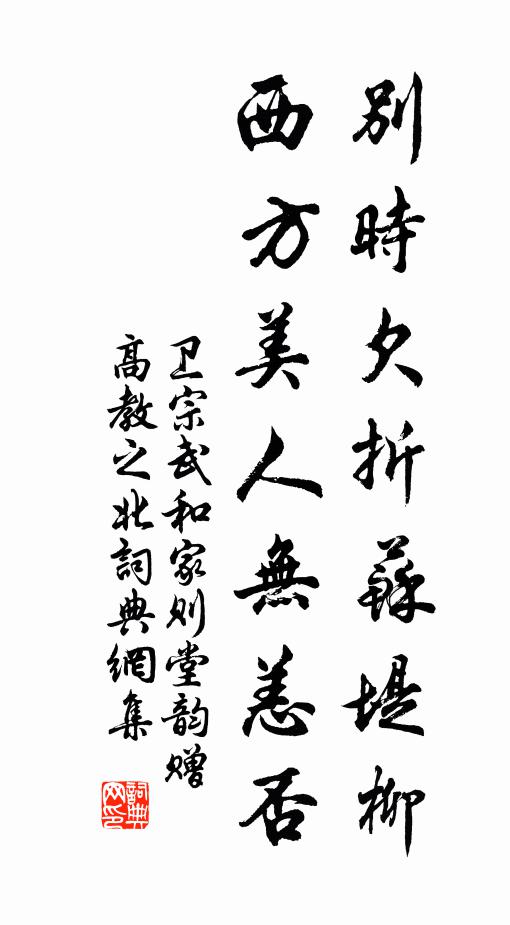 別時欠折蘇堤柳
西方美人無恙否
卫宗武和家则堂韵赠
高教之北詞典網集
詞典网印